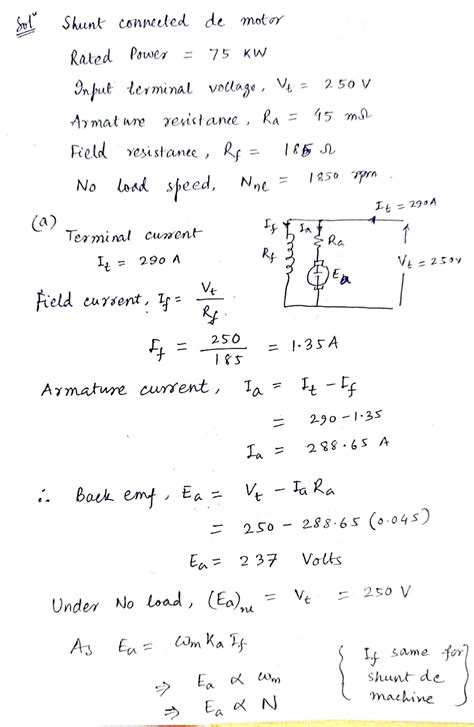 Solⁿ Shunt connected dc motor
Rated Power = 75 KW
Input terminal voltage, Vt = 250 V
Armature resistance, Ra = 45 mΩ
Field resistance, Rf = 185 Ω
No load speed, Nnl = 1850 rpm.
(a)
Terminal current
It = 290 A
It = 290A
If Ia
Rf Ra
Ea
Vt = 250V
Field current, If = Vt / Rf.
If = 250 / 185 = 1.35 A
Armature current, Ia = It - If
= 290 - 1.35
Ia = 288.65 A
∴ Back emf, Ea = Vt - Ia Ra
= 250 - 288.65 (0.045)
Ea = 237 Volts
Under No load, (Ea)nl = Vt = 250 V
As Ea = ωm Ka If
⇒ Ea ∝ ωm
⇒ Ea ∝ N
{ If same for
shunt dc
machine }